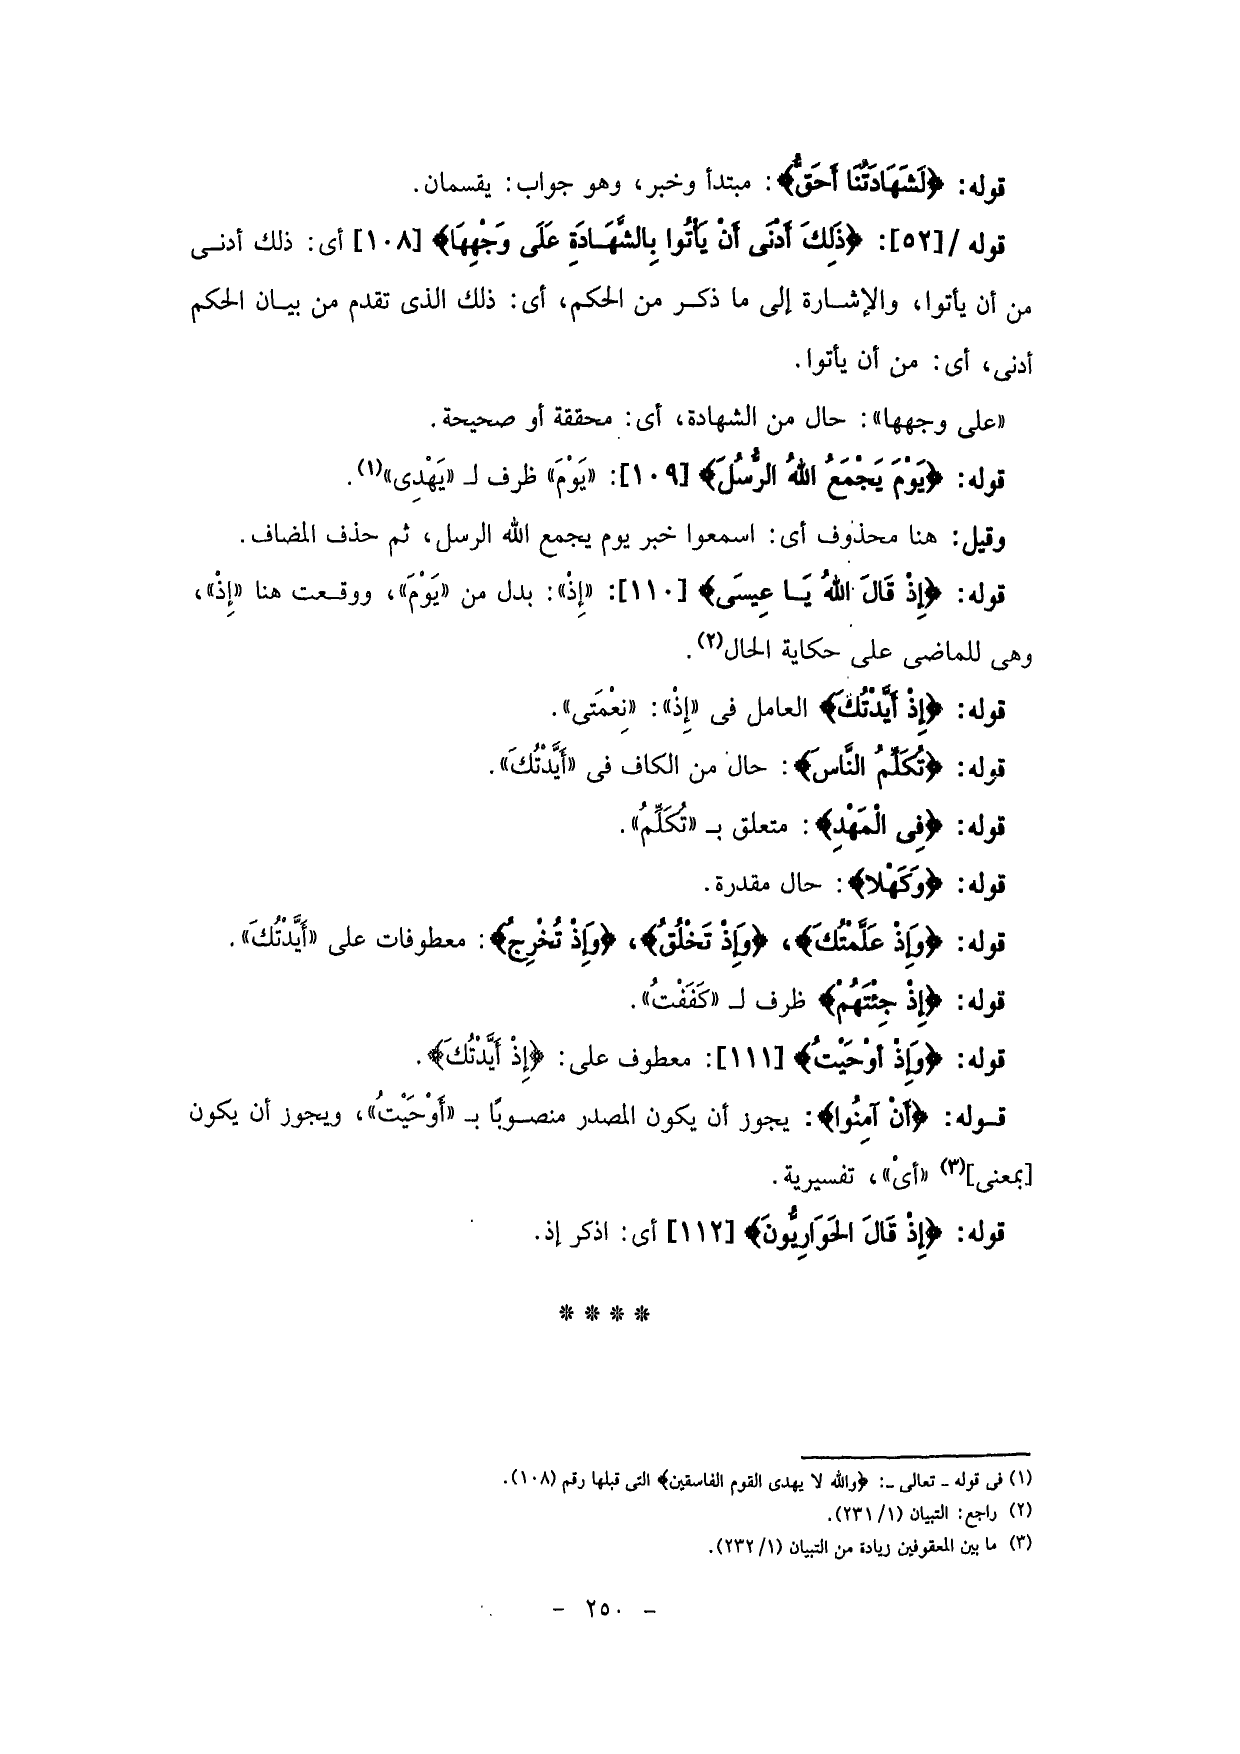 قوله: ﴿لَشَهَادَتُنَا أَحَقُّ﴾: مبتدأ وخبر، وهو جواب: يقسمان.
قوله /[٥٢]: ﴿ذَلِكَ أَدْنَى أَنْ يَأْتُوا بِالشَّهَادَةِ عَلَى وَجْهِهَا﴾ [١٠٨] أى: ذلك أدنى
من أن يأتوا، والإشارة إلى ما ذكر من الحكم، أى: ذلك الذى تقدم من بيان الحكم
أدنى، أى: من أن يأتوا.
«على وجهها»: حال من الشهادة، أى: محققة أو صحيحة.
قوله: ﴿يَوْمَ يَجْمَعُ اللهُ الرُّسُلَ﴾ [١٠٩]: «يَوْمَ» ظرف لـ «يَهْدِى»(١).
وقيل: هنا محذوف أى: اسمعوا خبر يوم يجمع الله الرسل، ثم حذف المضاف.
قوله: ﴿إِذْ قَالَ اللهُ يَا عِيسَى﴾ [١١٠]: «إِذْ»: بدل من «يَوْمَ»، ووقعت هنا «إِذْ»،
وهى للماضى على حكاية الحال(٢).
قوله: ﴿إِذْ أَيَّدْتُكَ﴾ العامل فى «إِذْ»: «نِعْمَتِى».
قوله: ﴿تُكَلِّمُ النَّاسَ﴾: حال من الكاف فى «أَيَّدْتُكَ».
قوله: ﴿فِى الْمَهْدِ﴾: متعلق بـ «تُكَلِّمُ».
قوله: ﴿وَكَهْلا﴾: حال مقدرة.
قوله: ﴿وَإِذْ عَلَّمْتُكَ﴾، ﴿وَإِذْ تَخْلُقُ﴾، ﴿وَإِذْ تُخْرِجُ﴾: معطوفات على «أَيَّدْتُكَ».
قوله: ﴿إِذْ جِئْتَهُمْ﴾ ظرف لـ «كَفَفْتُ».
قوله: ﴿وَإِذْ أَوْحَيْتُ﴾ [١١١]: معطوف على: ﴿إِذْ أَيَّدْتُكَ﴾.
قوله: ﴿أَنْ آمِنُوا﴾: يجوز أن يكون المصدر منصوبًا بـ «أَوْحَيْتُ»، ويجوز أن يكون
[بمعنى](٣) «أىْ»، تفسيرية.
قوله: ﴿إِذْ قَالَ الحَوَارِيُّونَ﴾ [١١٢] أى: اذكر إذ.
* * * *
(١) فى قوله ـ تعالى ـ: ﴿والله لا يهدى القوم الفاسقين﴾ التى قبلها رقم (١٠٨).
(٢) راجع: التبيان (١/ ٢٣١).
(٣) ما بين المعقوفين زيادة من التبيان (١/ ٢٣٢).
- ٢٥٠ -